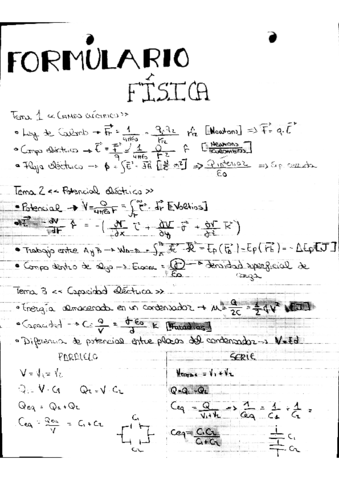 FORMULARIO
FÍSICA
Tema 1 << Campo eléctrico >>
• Ley de Coulomb → F = 1/4πε₀ q₁q₂/r² r̂ [Newtons] ⇒ F = q·E
• Campo eléctrico → E = F/q = 1/4πε₀ Q/r² r̂ [Newtons/Coulombs]
• Flujo eléctrico → ϕ = ∫E · dS ⇒ Qinterior/ε₀ ⇒ Sup. cerrada
Tema 2 << Potencial eléctrico >>
• Potencial → V = Q/4πε₀r = ∫E · dr [Voltios]
= -(dV/dx i + dV/dy j + dV/dz k)
• Trabajo entre A y B → = Ep(r) - Ep(r) = -ΔEp [J]
• Campo dentro de → σ/ε₀ → densidad superficial de carga
Tema 3 << Capacidad eléctrica >>
• Energía almacenada en un condensador → U = Q²/2C = 1/2 CV²
• Capacidad → C = Q/V = ε₀/d [Faradios]
• Diferencia de potencial entre placas del condensador → V = Ed
PARALELO
SERIE
V = V₁ = V₂
= V₁ + V₂
V · C₁ Q₂ = V C₂
Q = Q₁ = Q₂
Qeq = Q₁ + Q₂
Ceq = Q/V₁+V₂ → 1/Ceq = 1/C₁ + 1/C₂ =
Ceq = Qeq/V = C₁ + C₂
Ceq = C₁C₂/C₁+C₂
C₁
C₂
C₁
C₂